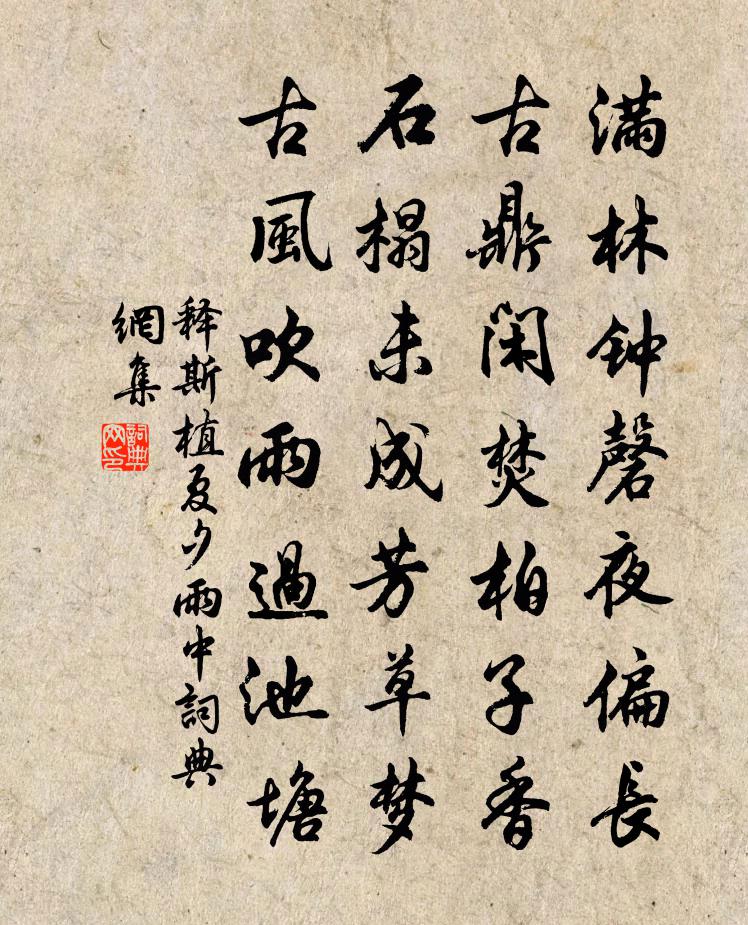 满林钟磬夜偏長
古鼎闲焚柏子香
石榻未成芳草梦
古風吹雨過池塘
释斯植夏夕雨中詞典
網集
詞典
网印